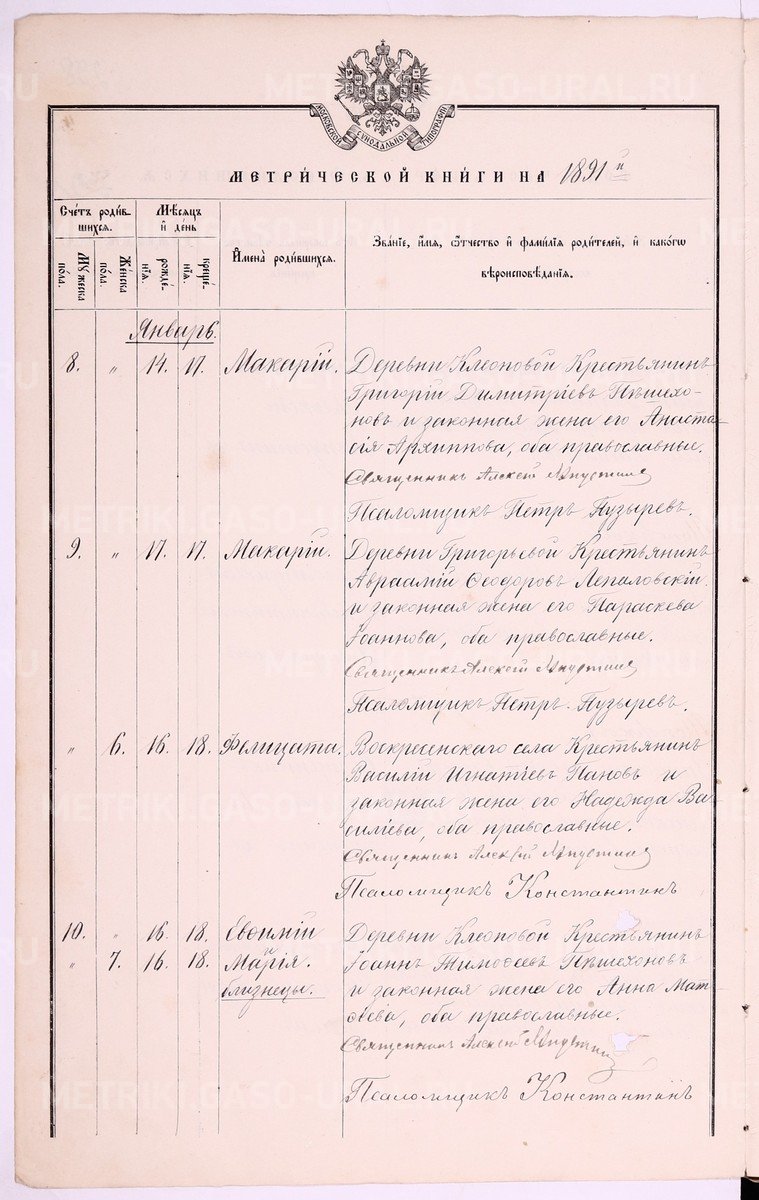 МОСКОВСКОЙ СѴНОДАЛЬНОЙ ТИПОГРАФІИ
МЕТРИ́ЧЕСКОЙ КНИ́ГИ НА 1891 й
Сче́тъ роди́в-
шихся.
Мѣ́сяцъ
и де́нь
Му́жеска
пола.
Же́нска
пола.
рожде́-
нїя.
креще́-
нїя.
И҆мена̀ роди́вшихся.
Зва́нїе, и҆́мя, ѻ҆́тчество и҆ фами́лїя роди́телей, и҆ како́гѡ
вѣроисповѣ́данїя.
Январь.
8. " 14. 17. Макарій. Деревни Клеоповой Крестьянинъ
Григорій Димитріевъ Пѣшехо-
новъ и законная жена его Анаста-
сія Архиппова, оба православные.
Священникъ Алексій
Псаломщикъ Петръ Пузыревъ.
9. " 17. 17. Макарій. Деревни Григорьевой Крестьянинъ
Авраамій Ѳеодоровъ Лепаловскій
и законная жена его Параскева
Іоаннова, оба православные.
Священникъ Алексій
Псаломщикъ Петръ Пузыревъ.
" 6. 16. 18. Фелицата. Воскресенскаго села Крестьянинъ
Василій Игнатіевъ Пановъ и
законная жена его Надежда Ва-
силіева, оба православные.
Священникъ Алексій
Псаломщикъ Константинъ
10. " 16. 18. Евѳимій Деревни Клеоповой Крестьянинъ
и
" 7. 16. 18. Марія. Іоаннъ Тимоѳеевъ Пѣшехоновъ
близнецы. и законная жена его Анна Мат-
ѳѣева, оба православные.
Священникъ Алексій
Псаломщикъ Константинъ